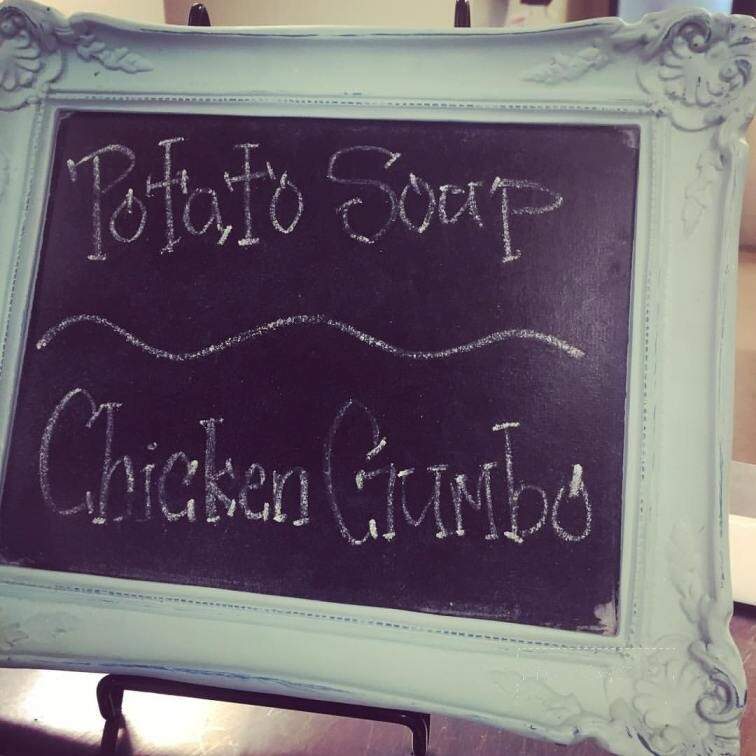 Potato Soup
Chicken Gumbo